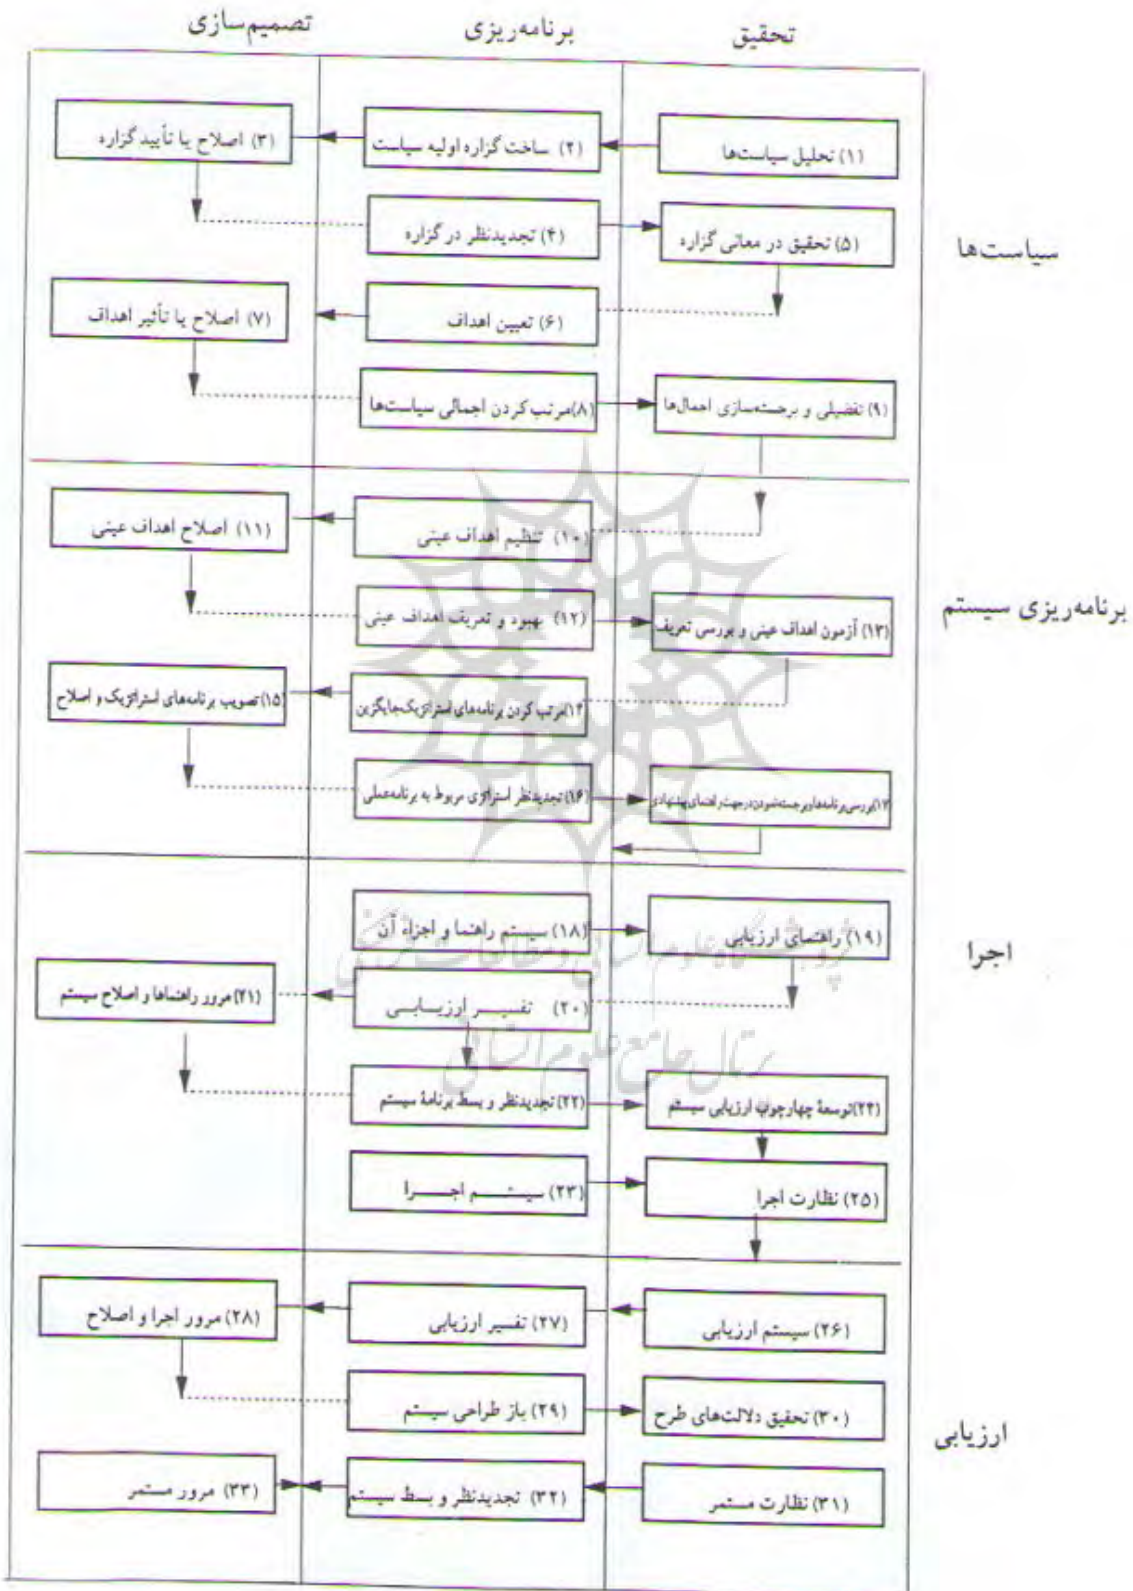 تحقیق
برنامه‌ریزی
تصمیم‌سازی
سیاست‌ها
(۱) تحلیل سیاست‌ها
(۲) ساخت گزاره اولیه سیاست
(۳) اصلاح یا تأیید گزاره
(۴) تجدیدنظر در گزاره
(۵) تحقیق در معانی گزاره
(۶) تعیین اهداف
(۷) اصلاح یا تأثیر اهداف
(۸) مرتب کردن اجمالی سیاست‌ها
(۹) تفضیلی و برجسته‌سازی اجمال‌ها
برنامه‌ریزی سیستم
(۱۰) تنظیم اهداف عینی
(۱۱) اصلاح اهداف عینی
(۱۲) بهبود و تعریف اهداف عینی
(۱۳) آزمون اهداف عینی و بررسی تعریف
(۱۴) مرتب کردن برنامه‌های استراتژیک جایگزین
(۱۵) تصویب برنامه‌های استراتژیک و اصلاح
(۱۶) تجدیدنظر استراتژی مربوط به برنامه عملی
(۱۷) بررسی برنامه‌ها و برجسته نمودن در جهت راهنمای پیشنهادی
اجرا
(۱۸) سیستم راهنما و اجزاء آن
(۱۹) راهنمای ارزیابی
(۲۰) تفسیر ارزیابی
(۲۱) مرور راهنماها و اصلاح سیستم
(۲۲) تجدیدنظر و بسط برنامهٔ سیستم
(۲۴) توسعهٔ چهارچوب ارزیابی سیستم
(۲۳) سیستم اجرا
(۲۵) نظارت اجرا
پژوهشگاه علوم انسانی و مطالعات فرهنگی
پرتال جامع علوم انسانی
ارزیابی
(۲۶) سیستم ارزیابی
(۲۷) تفسیر ارزیابی
(۲۸) مرور اجرا و اصلاح
(۲۹) باز طراحی سیستم
(۳۰) تحقیق دلالت‌های طرح
(۳۱) نظارت مستمر
(۳۲) تجدیدنظر و بسط سیستم
(۳۳) مرور مستمر